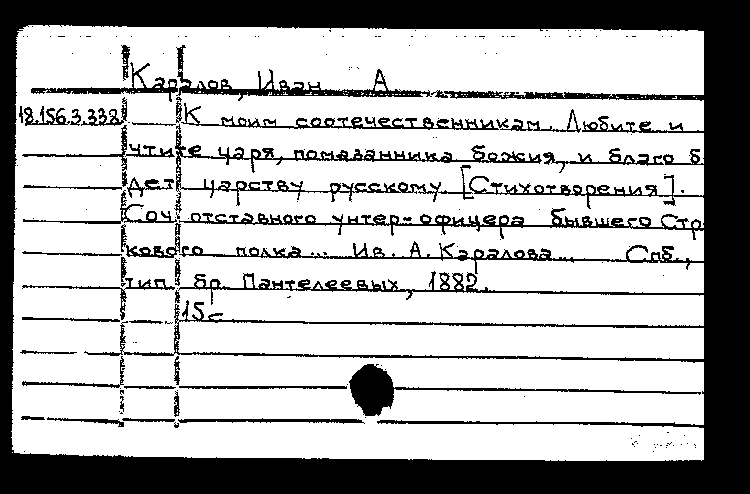 Каралов, Иван А
18.156.3.338 К моим соотечественникам. Любите и
чтите царя, помазанника божия, и благо б
дет царству русскому. [Стихотворения].
Соч. отставного унтер-офицера бывшего Стр
кового полка... Ив. А. Каралова... Спб.,
тип. бр. Пантелеевых, 1882.
15 с